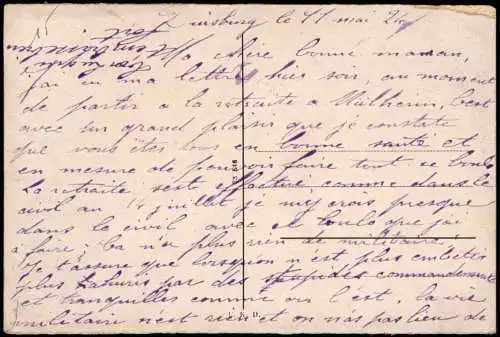 Duisburg le 11 mai 24
Ma chère bonne maman,
J'ai eu ma lettre hier soir, au moment
de partir a la retraite a Mülheim, C'est
avec un grand plaisir que je constate
que vous êtes tous en bonne santé et
en mesure de pouvoir faire tout le
La retraite s'est effectué comme dans le
civil au 14 juillet je my crois presque
dans le civil avec ce que j'ai
à faire; ça n'a plus rien de militaire.
Je t'assure que lorsqu'on n'est plus embêtés
plus ahuris par des stupides commandements
et tranquilles comme on l'est, la vie
militaire n'est rien et on n'as pas lieu de